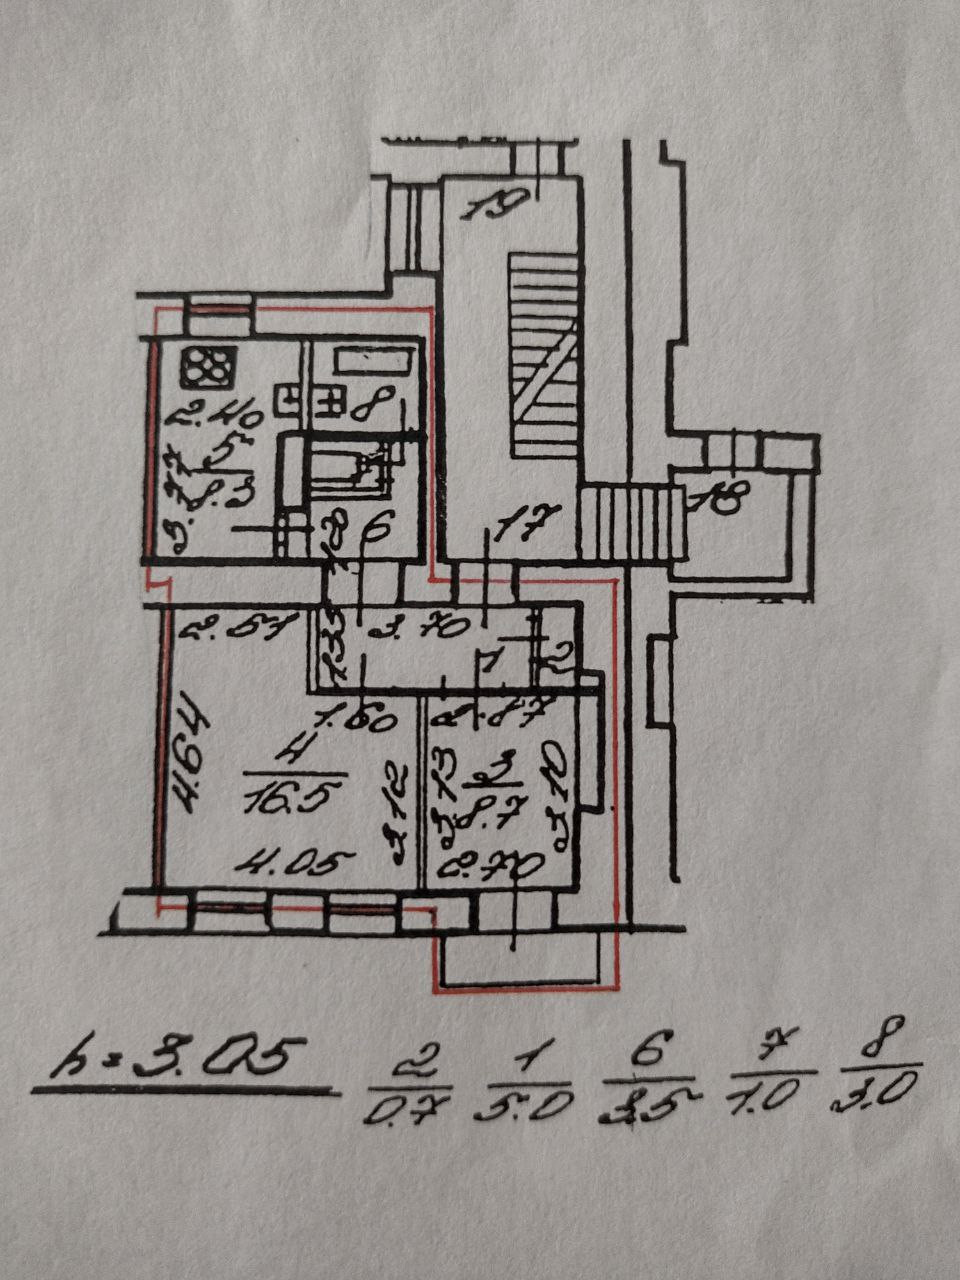 19
2.40
8
5
8.3
3.77
18
17
6
1.18
2.57
3.70
1.35
1
2
1.60
2.87
4.64
4
16.5
3.13
3
8.7
3.10
3.12
4.05
2.70
h = 3.05
2 1 6 7 8
0.7 5.0 3.5 1.0 3.0